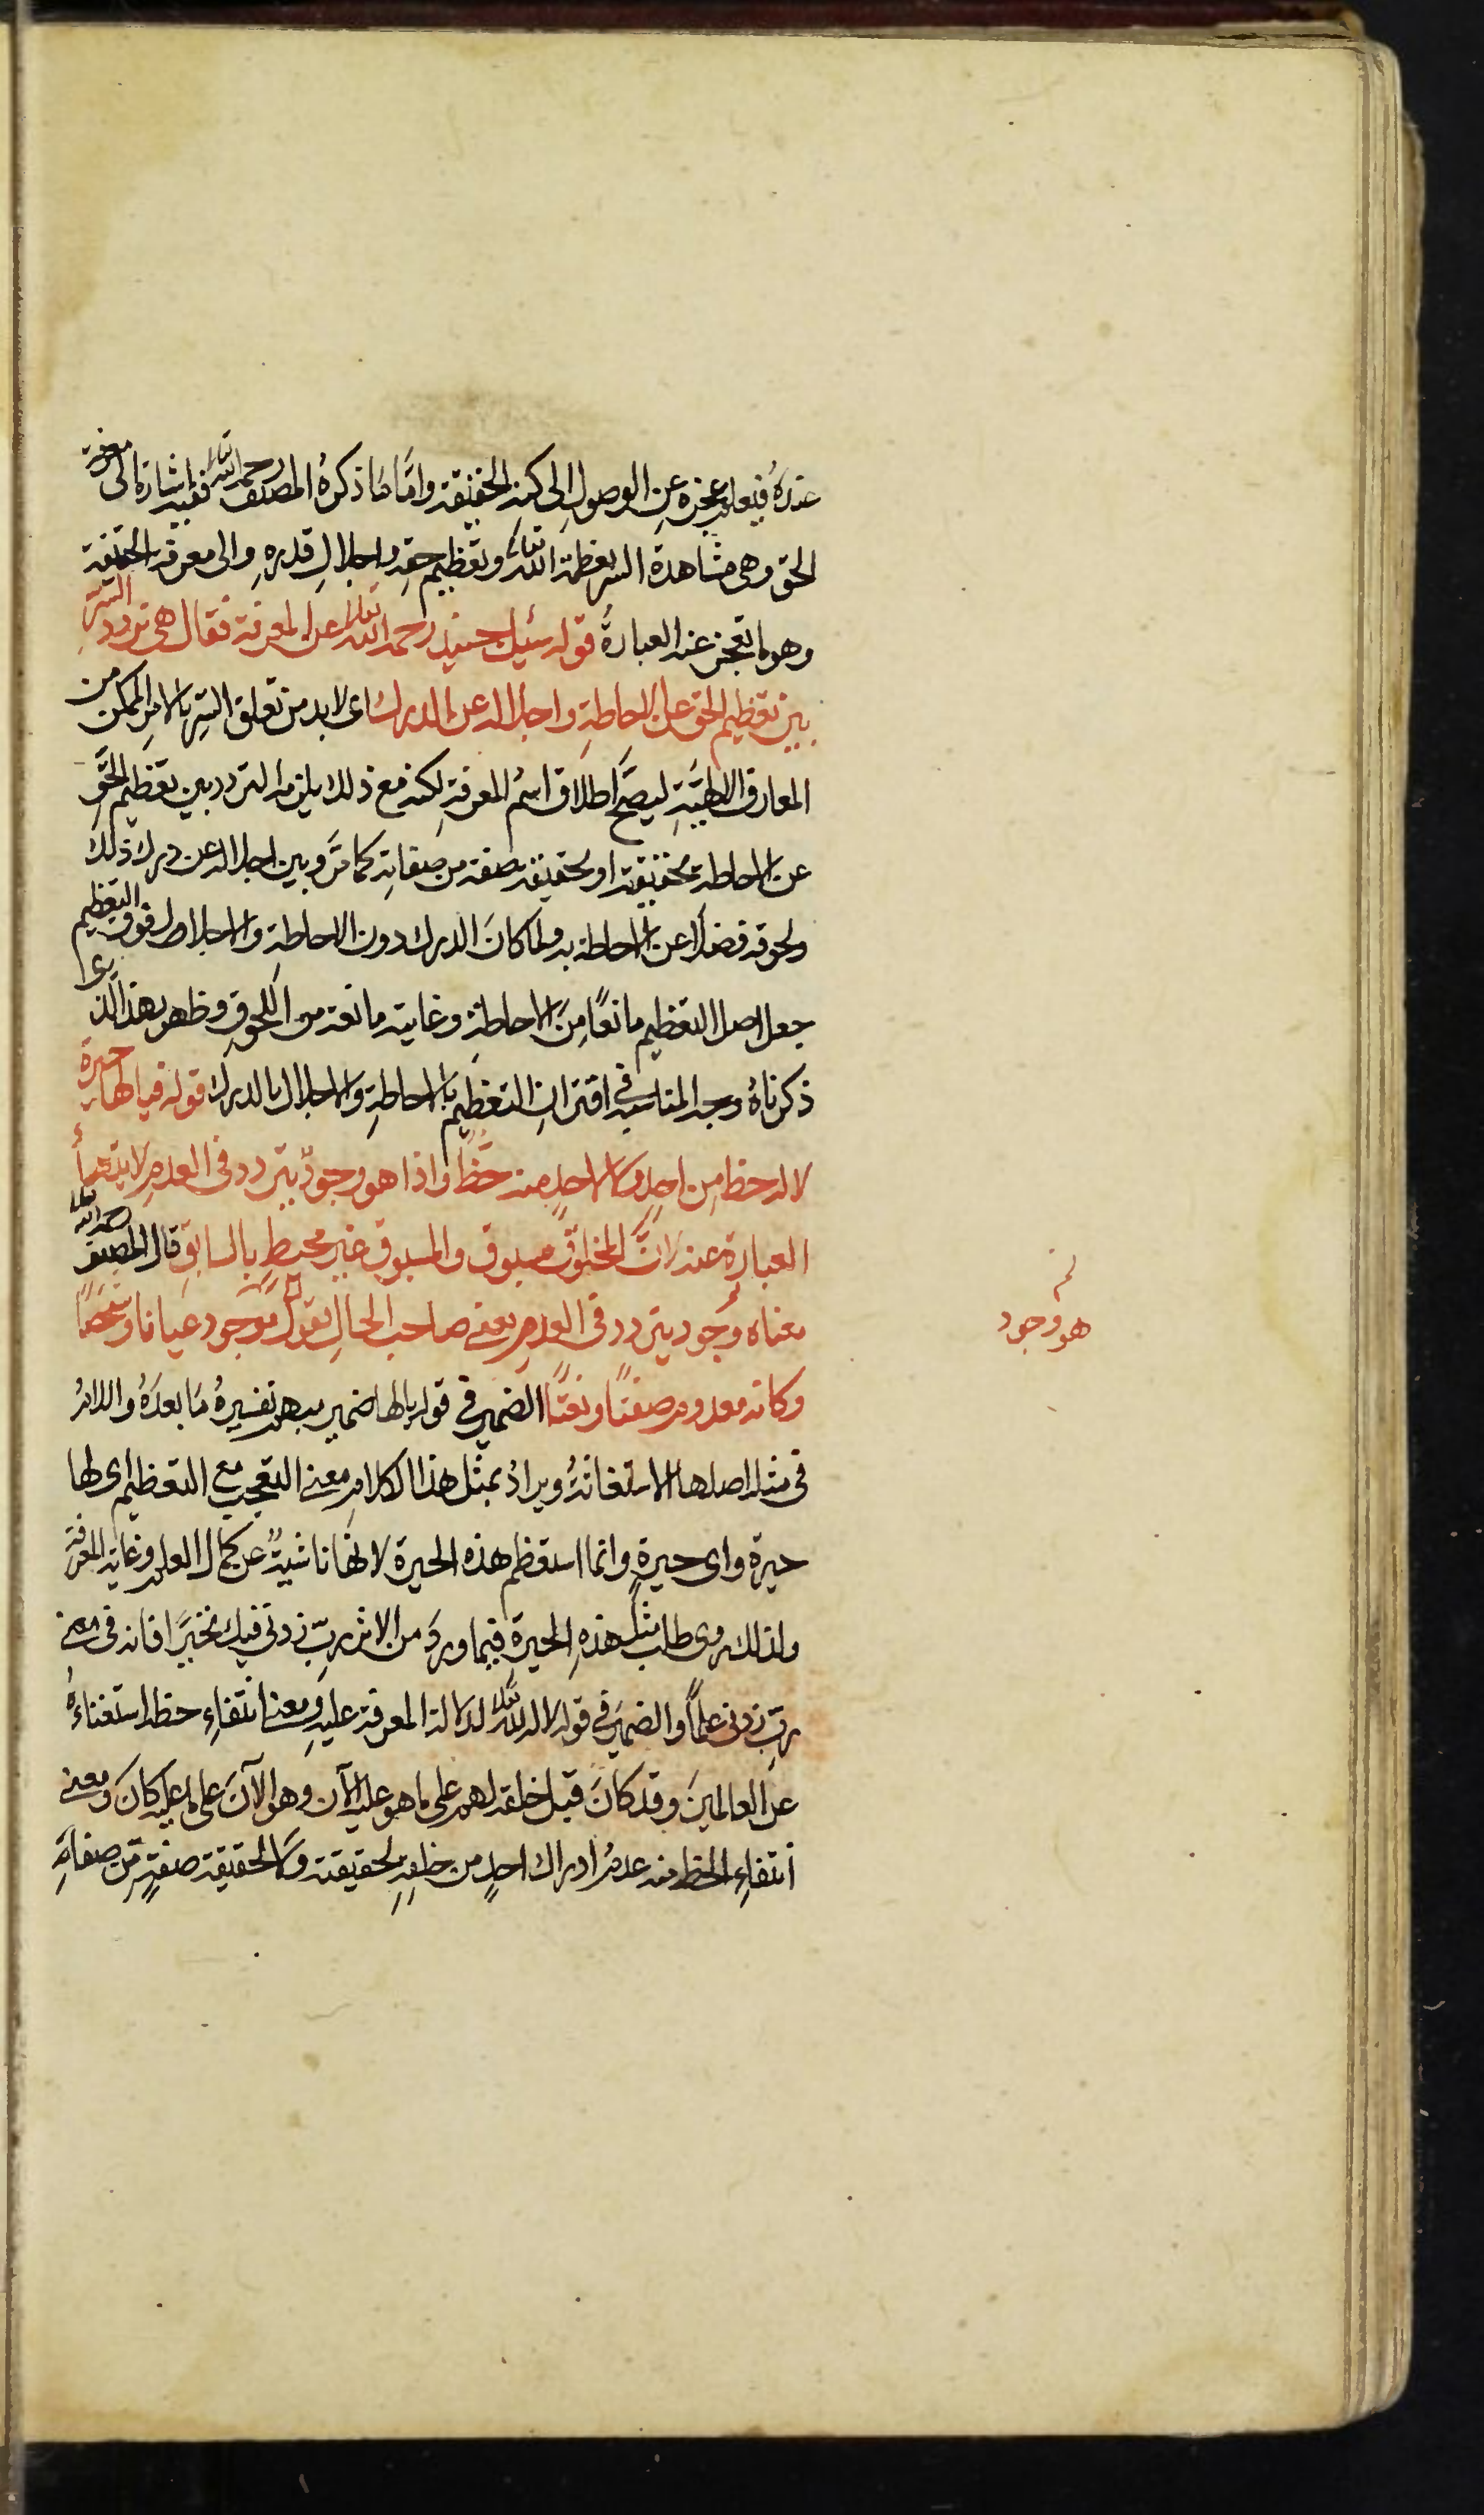 عنده فيعلم عجزه عن الوصول الى كنه الحقيقة واما ما ذكره المصنف رحمه الله تعالى ففيه اشارة الى معرفة
الحق وهى مشاهدة السر بعظمة الله تعالى وتعظيم حقه واجلال قدره والى معرفة الحقيقة
وهو ما تعجز عنه العبارة قوله سئل جنيد رحمه الله تعالى عن المعرفة فقال هى تردد السر
بين تعظيم الحق عن الاحاطة واجلاله عن الدرك اى لابد من تعلق السر بالامر الممكن من
المعارف الالهية ليصح اطلاق اسم المعرفة لكنه مع ذلك يلزمه التردد بين تعظيم الحق
عن الاحاطة بحقيقته او بحقيقة صفة من صفاته كما مر وبين اجلاله عن درك ذلك
ولحوقه فضلا عن الاحاطة به ولما كان الدرك دون الاحاطة والاجلال فوق التعظيم
جعل اصل التعظيم مانعا من الاحاطة وغايته مانعة من اللحوق وظهر بهذا الذى
ذكرناه وجه المناسبة فى اقتران التعظيم بالاحاطة والاجلال بالدرك قوله فيالها حيرة
لا له حظ من احد ولا لاحد منه حظ واذا هو وجود يتردد فى العدم لا يتهيأ
العبارة عنه لان المخلوق مسبوق والمسبوق غير محيط بالسابق قال المصنف رحمه الله تعالى
معناه وجود يتردد فى العدم يعنى صاحب الحال يقول موجود عيانا وشخصا
وكانه معدوم صفتا ونعتا الضمير فى قوله يالها ضمير مبهم تفسيره ما بعده واللام
فى مثله اصلها الاستغاثة ويراد بمثل هذا الكلام معنى التعجب مع التعظيم اى لها
حيرة واى حيرة وانما استعظم هذه الحيرة لانها ناشية عن كمال العلم وغاية المعرفة
ولذلك روى طلب مثل هذه الحيرة فيما ورد من الاثر رب زدنى فيك تحيرا فانه فى معنى
رب زدنى علما والضمير فى قوله لا له لله تعالى لدلالة المعرفة عليه ومعنى انتفاء حظه استغناءه
عن العالمين وقد كان قبل خلقه لهم على ما هو عليه الآن وهو الآن على ما عليه كان ومعنى
انتفاء الحظ منه عدم ادراك احد من خلقه لحقيقته ولا لحقيقة صفة من صفاته
هو وجود